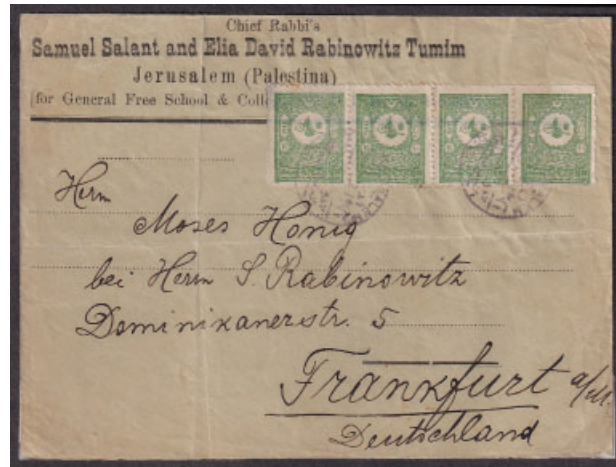 Chief Rabbi's
Samuel Salant and Elia David Rabinowitz Tumim
Jerusalem (Palestina)
[for General Free School &
Herrn
Moses Honig
bei Herrn S. Rabinowitz
Dominikanerstr. 5
Frankfurt a/M.
Deutschland